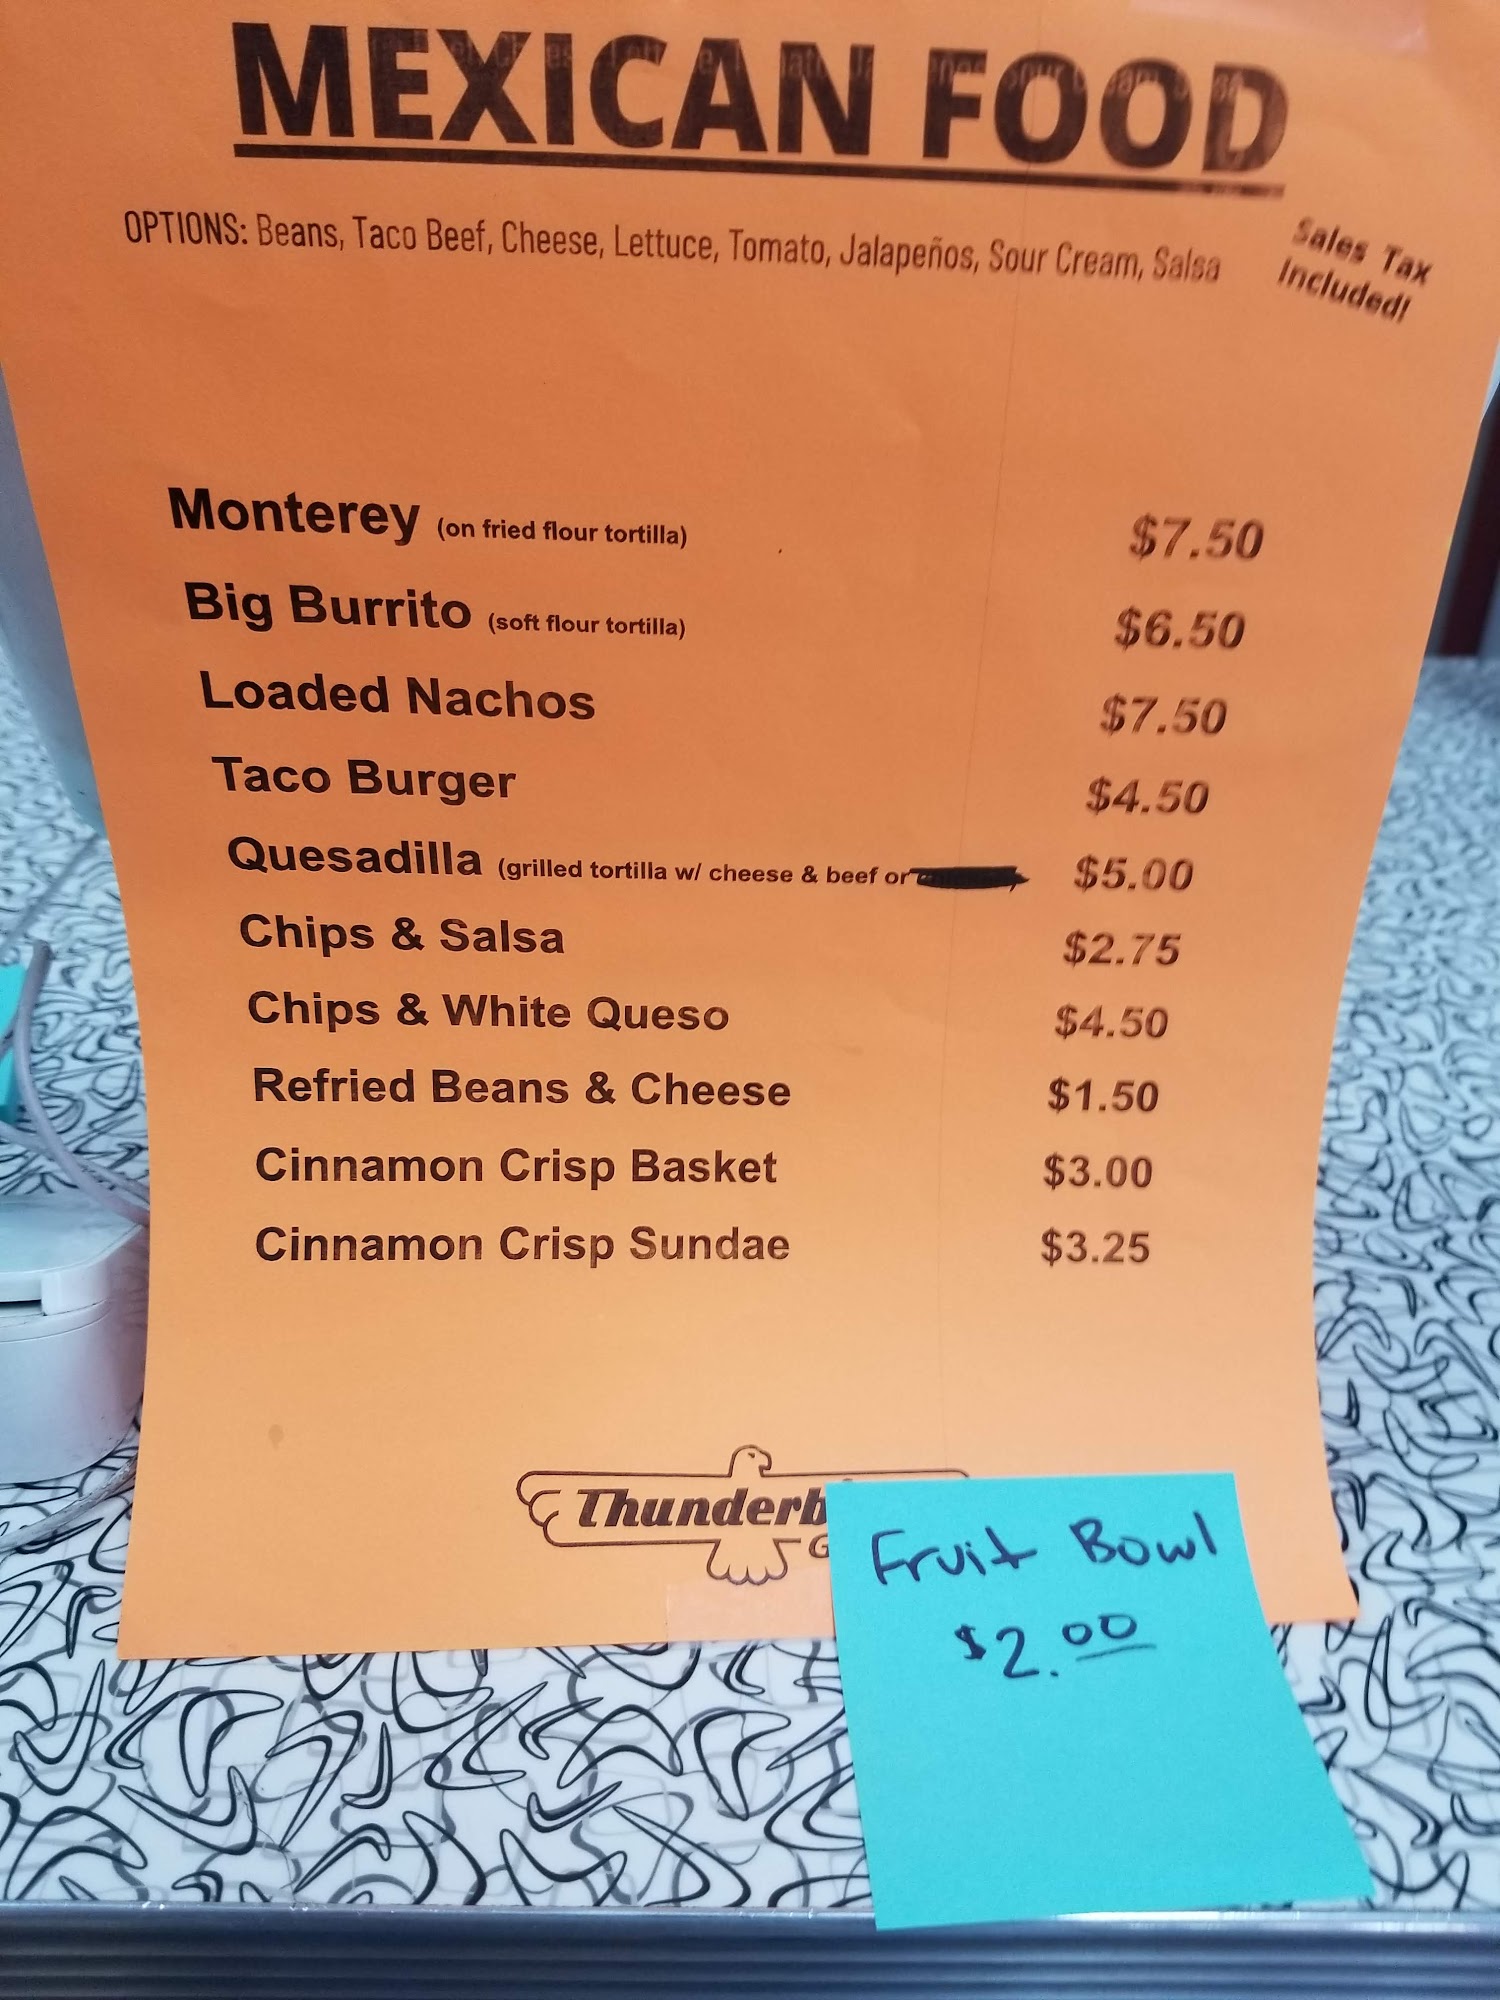 MEXICAN FOOD
OPTIONS: Beans, Taco Beef, Cheese, Lettuce, Tomato, Jalapeños, Sour Cream, Salsa
Sales Tax
Included!
Monterey (on fried flour tortilla) $7.50
Big Burrito (soft flour tortilla) $6.50
Loaded Nachos $7.50
Taco Burger $4.50
Quesadilla (grilled tortilla w/ cheese & beef or $5.00
Chips & Salsa $2.75
Chips & White Queso $4.50
Refried Beans & Cheese $1.50
Cinnamon Crisp Basket $3.00
Cinnamon Crisp Sundae $3.25
Thunderb
G
Fruit Bowl
$2.00